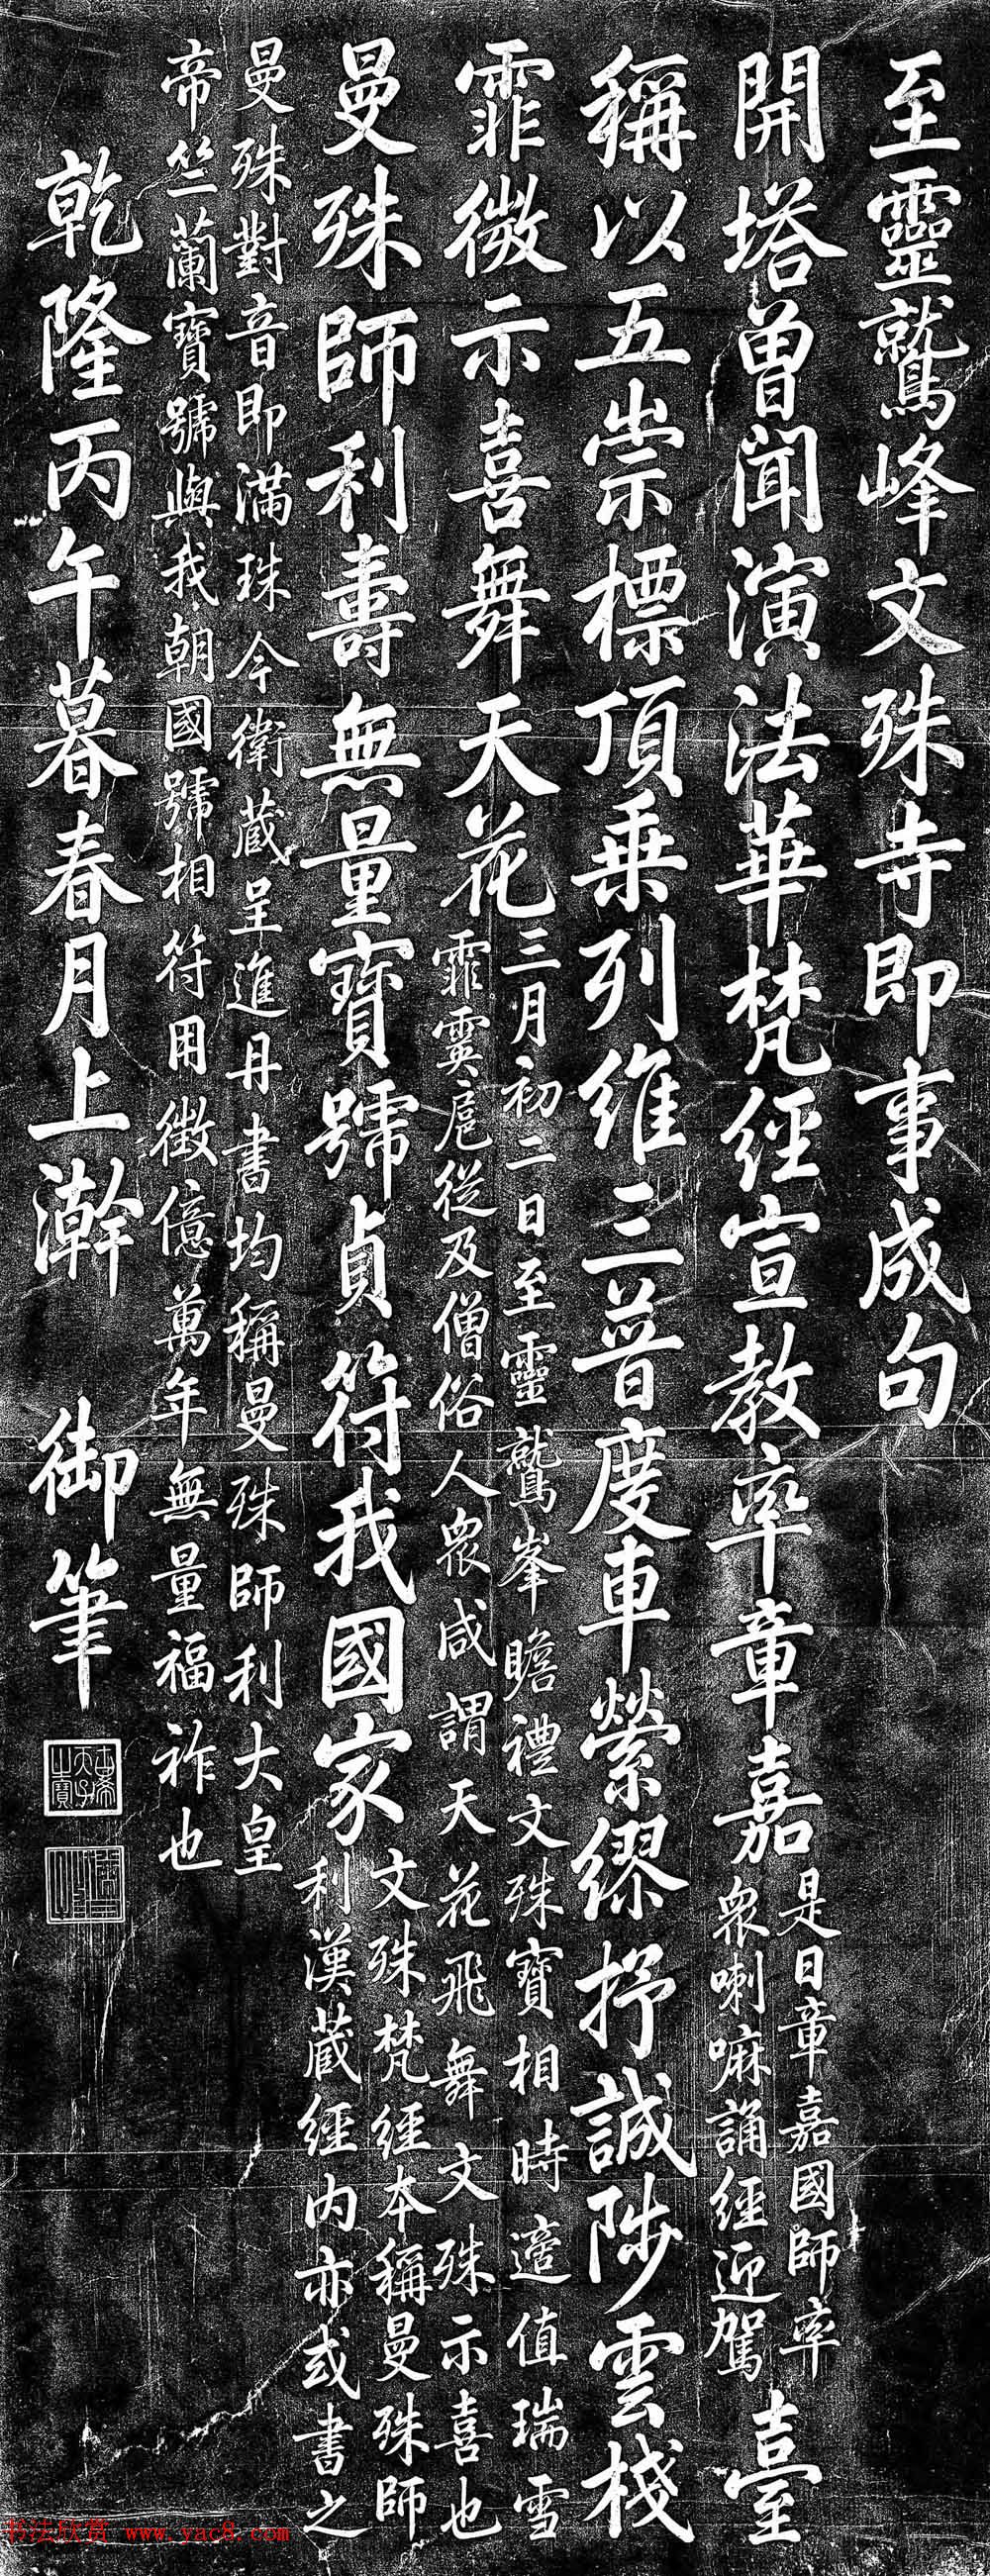 至靈鷲峰文殊寺即事成句
開塔曾聞演法華梵經宣教率章嘉
是日章嘉國師率
衆喇嘛誦經迎駕
臺
稱以五崇標頂乘列維三普度車縈繆抒誠陟雲棧
霏微示喜舞天花
三月初二日至靈鷲峯瞻禮文殊寶相時適值瑞雪
霏霙扈從及僧俗人衆咸謂天花飛舞文殊示喜也
曼殊師利壽無量寶號貞符我國家
文殊梵經本稱曼殊師
利漢藏經内亦或書之
曼殊對音即滿珠今衛藏呈進丹書均稱曼殊師利大皇
帝竺蘭寶號與我朝國號相符用徵億萬年無量福祚也
乾隆丙午暮春月上澣 御筆
古希天子之寶
书法欣赏 www.yac8.com